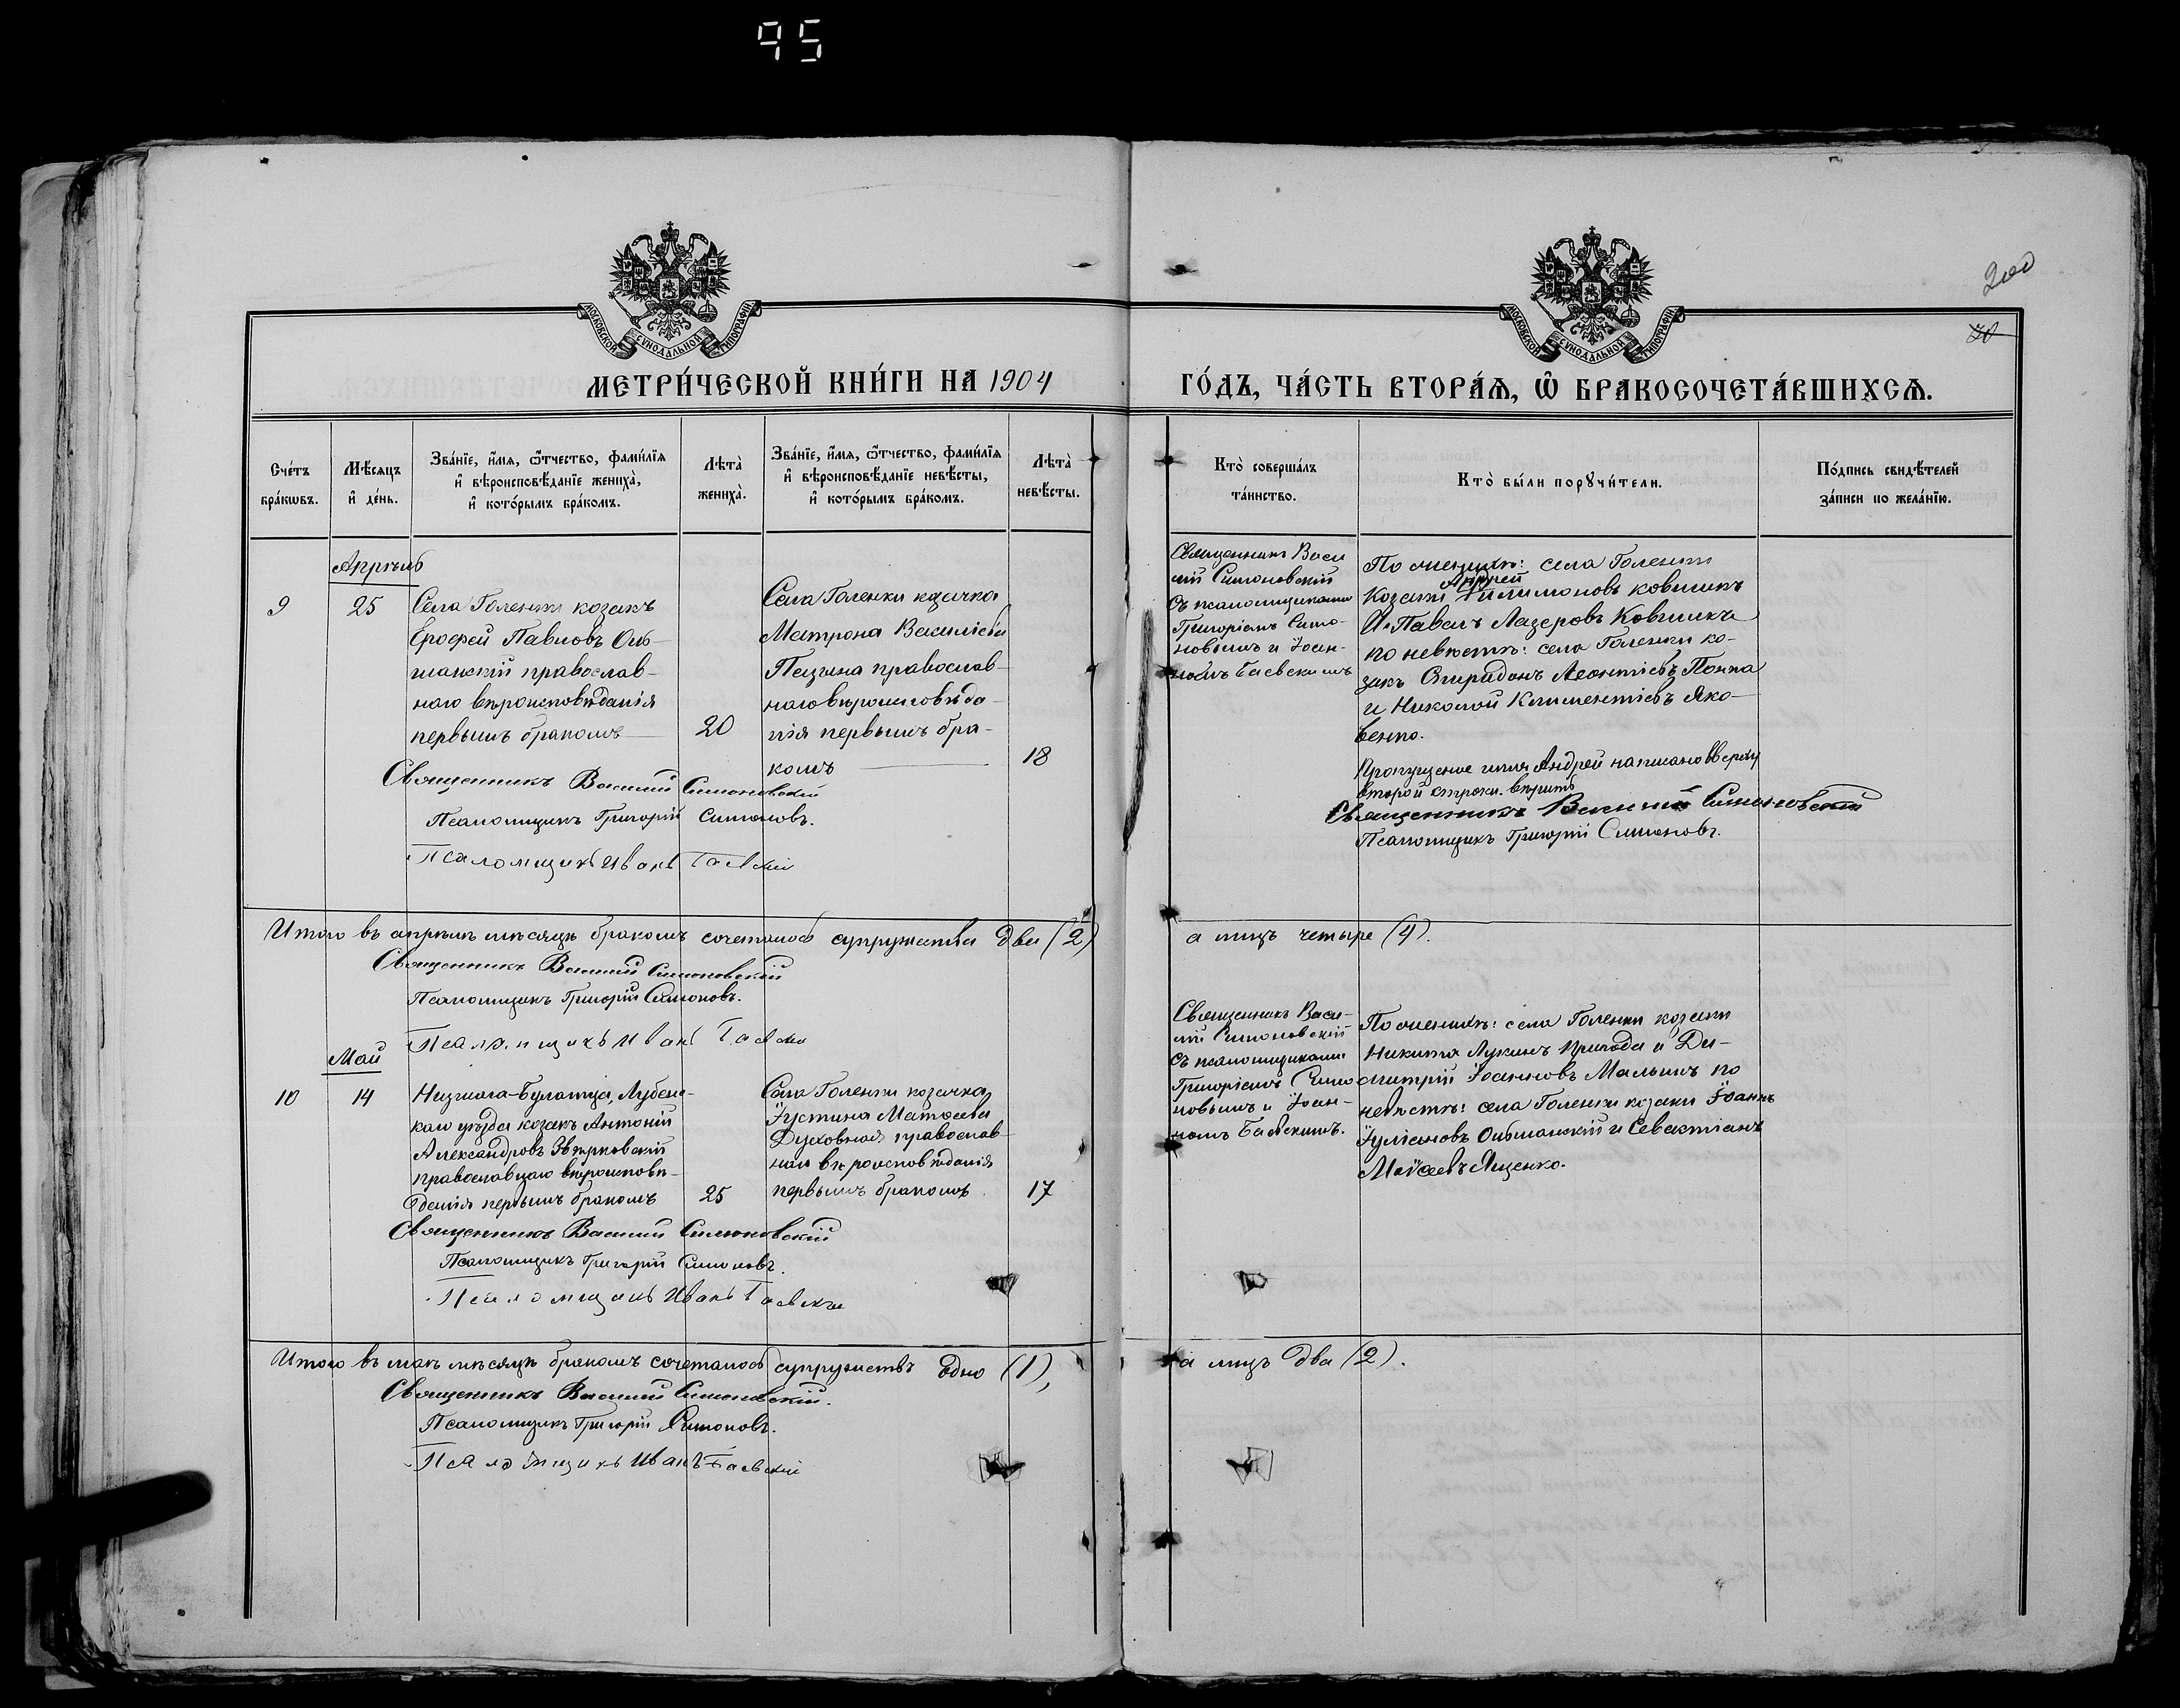 95
200
70
МОСКОВСКОЙ СѴНОДАЛЬНОЙ ТИПОГРАФІИ
МОСКОВСКОЙ СѴНОДАЛЬНОЙ ТИПОГРАФІИ
МЕТРИ́ЧЕСКОЙ КНИ́ГИ НА 1904
ГО́ДЪ, ЧА́СТЬ ВТОРА́Ѧ, Ѽ БРАКОСОЧЕТА́ВШИХСѦ.
Сче́тъ
бра́кѡвъ.
Мѣ́сяцъ
и҆ де́нь.
Зва́нїе, и҆́мя, ѻ҆́тчество, фами́лїя
и҆ вѣроисповѣ́данїе жениха̀,
и҆ кото́рымъ бра́комъ.
Лѣта̀
жениха̀.
Зва́нїе, и҆́мя, ѻ҆́тчество, фами́лїя
и҆ вѣроисповѣ́данїе невѣ́сты,
и҆ кото́рымъ бра́комъ.
Лѣта̀
невѣ́сты.
Кто̀ соверша́лъ
та́инство.
Кто̀ бы́ли порꙋчи́тели.
По́дпись свидѣ́телей
за́писи по жела́нїю.
Апрѣль
9
25
Села Голенки козакъ
Ерофей Павловъ Оль-
шанскій православ-
наго вѣроисповѣданія
первымъ бракомъ
20
Села Голенки козачка
Матрона Василіева
православ-
наго вѣроисповѣда-
нія первымъ бра-
комъ
18
Священникъ Васи
лій Симоновскій
съ псаломщиками
Григоріемъ Симо-
новымъ и Іоан-
номъ Баевскимъ
По женихѣ: села Голенки
Андрей
козаки Филимоновъ Ковшикъ
и Павелъ Лазеровъ Ковшикъ
по невѣстѣ: села Голенки ко-
закъ Спиридонъ Леонтіевъ Попка
и Николай Климентіевъ Яко-
венко.
Пропущеное имя Андрей написано вверху
второй строки. вѣрить
Священникъ Василій Симоновскій
Псаломщикъ Григорій Симоновъ.
Священникъ Василій Симоновскій
Псаломщикъ Григорій Симоновъ.
Псаломщикъ Иванъ Баевскій
Итого въ апрѣлѣ мѣсяцѣ бракомъ сочеталось супружества два (2)
а лицъ четыре (4).
Священникъ Василій Симоновскій
Псаломщикъ Григорій Симоновъ.
Псаломщикъ Иванъ Баевскій
Май
10
14
Лубенс-
каго уѣзда козакъ Антоній
Александровъ Звѣрковскій
православнаго вѣроисповѣ-
данія первымъ бракомъ
25
Села Голенки козачка
Іустина Матѳеева
Духовная православ-
наго вѣроисповѣданія
первымъ бракомъ
17
Священникъ Васи-
лій Симоновскій
съ псаломщиками
Григоріемъ Симо
новымъ и Іоан-
номъ Баевскимъ.
По женихѣ: села Голенки козаки
Никита Лукинъ Пригода и Ди-
митрій Іоанновъ Малышъ по
невѣстѣ: села Голенки козаки Іоаннъ
Іуліановъ Ольшанскій и Севастіанъ
Моѵсеевъ Яценко.
Священникъ Василій Симоновскій
Псаломщикъ Григорій Симоновъ.
Псаломщикъ Иванъ Баевскій
Итого въ маѣ мѣсяцѣ бракомъ сочеталось супружествъ одно (1),
а лицъ два (2).
Священникъ Василій Симоновскій.
Псаломщикъ Григорій Симоновъ.
Псаломщикъ Иванъ Баевскій